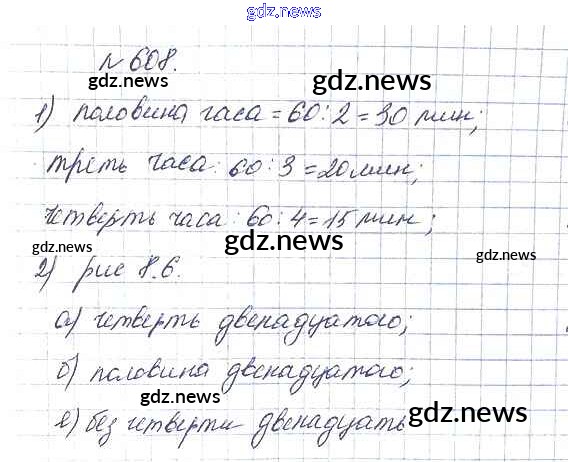 gdz.news
gdz.news
№ 608.
gdz.news
gdz.news
1) половина часа = 60 : 2 = 30 мин;
треть часа: 60 : 3 = 20 мин;
четверть часа: 60 : 4 = 15 мин;
gdz.news
gdz.news
gdz.news
2) рис 8.6.
а) четверть двенадцатого;
б) половина двенадцатого;
gdz.news
в) без четверти двенадцать
gdz.news
gdz.news